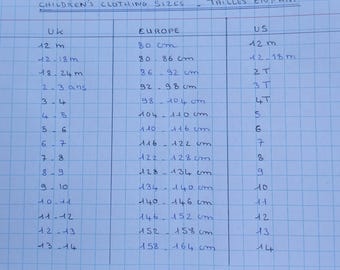 CHILDREN'S CLOTHING SIZES - TAILLES ENFANT
UK EUROPE US
12 m 80 cm 12 m
12 - 18m 80 - 86 cm 12 - 18 m
18 - 24 m 86 - 92 cm 2 T
2 - 3 ans 92 - 98 cm 3 T
3 - 4 98 - 104 cm 4T
4 - 5 104 - 110 cm 5
5 - 6 110 - 116 cm 6
6 - 7 116 - 122 cm 7
7 - 8 122 - 128 cm 8
8 - 9 128 - 134 cm 9
9 - 10 134 - 140 cm 10
10 - 11 140 - 146 cm 11
11 - 12 146 - 152 cm 12
12 - 13 152 - 158 cm 13
13 - 14 158 - 164 cm 14